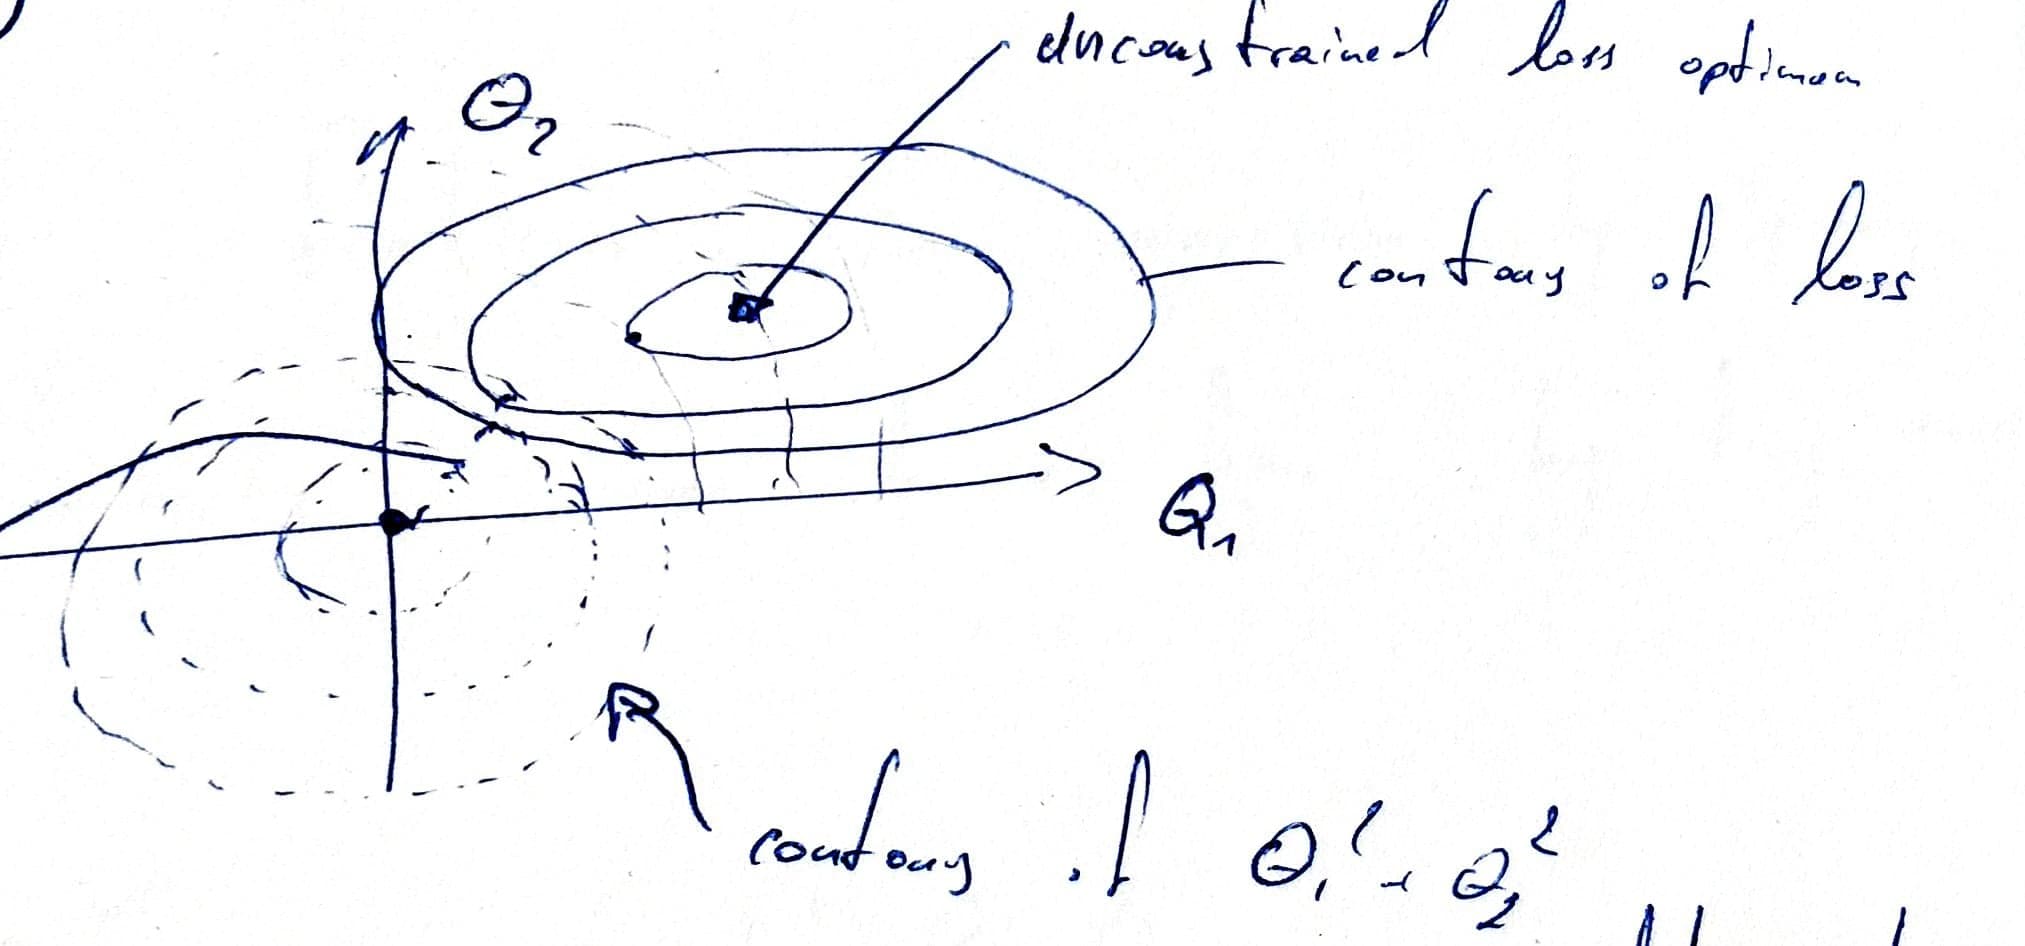 unconstrained loss optimum
θ₂
contours of loss
θ₁
contours of θ₁² + θ₂²